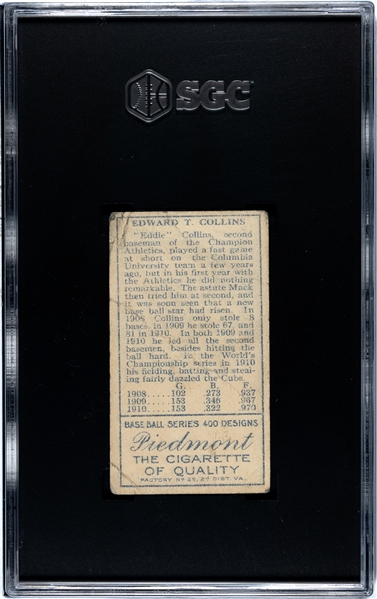 SGC
EDWARD T. COLLINS
"Eddie" Collins, second
baseman of the Champion
Athletics, played a fast game
at short on the Columbia
University team a few years
ago, but in his first year with
the Athletics he did nothing
remarkable. The astute Mack
then tried him at second, and it
was soon seen that a new
base ball star had risen. In
1908 Collins only stole 8
bases, in 1909 he stole 67, and
81 in 1910. In both 1909 and
1910 he led all the second
basemen, besides hitting the
ball hard. In the World's
Championship series in 1910
his fielding, batting and steal-
ing fairly dazzled the Cubs.
G. B. F.
1908 102 .273 .937
1909 153 .346 .967
1910 153 .322 .970
BASE BALL SERIES 400 DESIGNS
Piedmont
THE CIGARETTE
OF QUALITY
FACTORY No 25, 2d DIST. VA.